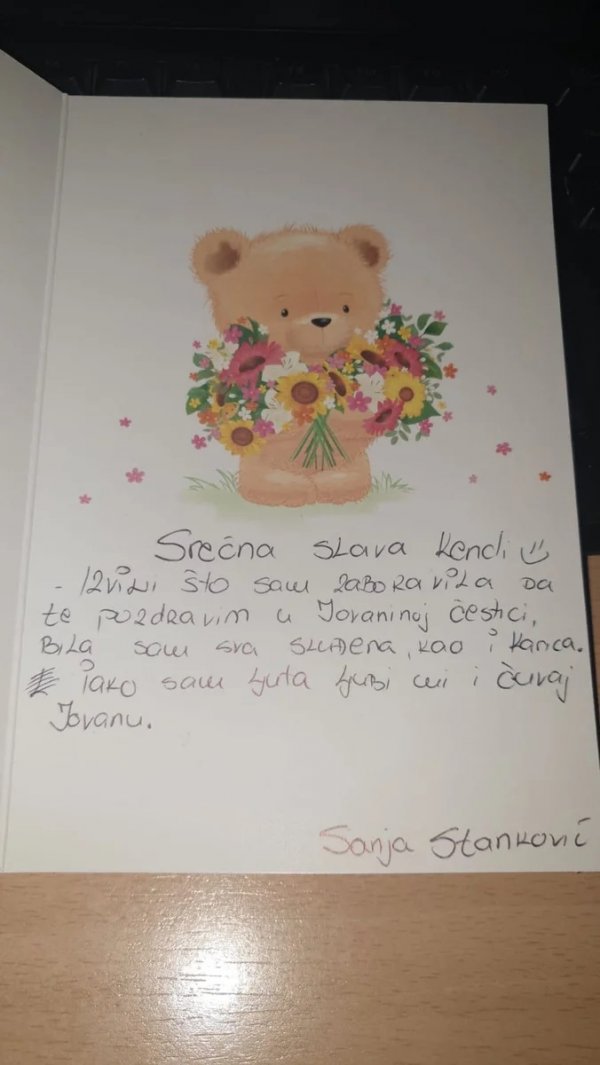 Srećna slava Kendi
- Izvini što sam zaboravila da
te pozdravim u Jovaninoj čestici,
bila sam sva sluđena, kao i Kanca.
iako sam ljuta ljubi mi i čuvaj
Jovanu.
Sanja Stanković